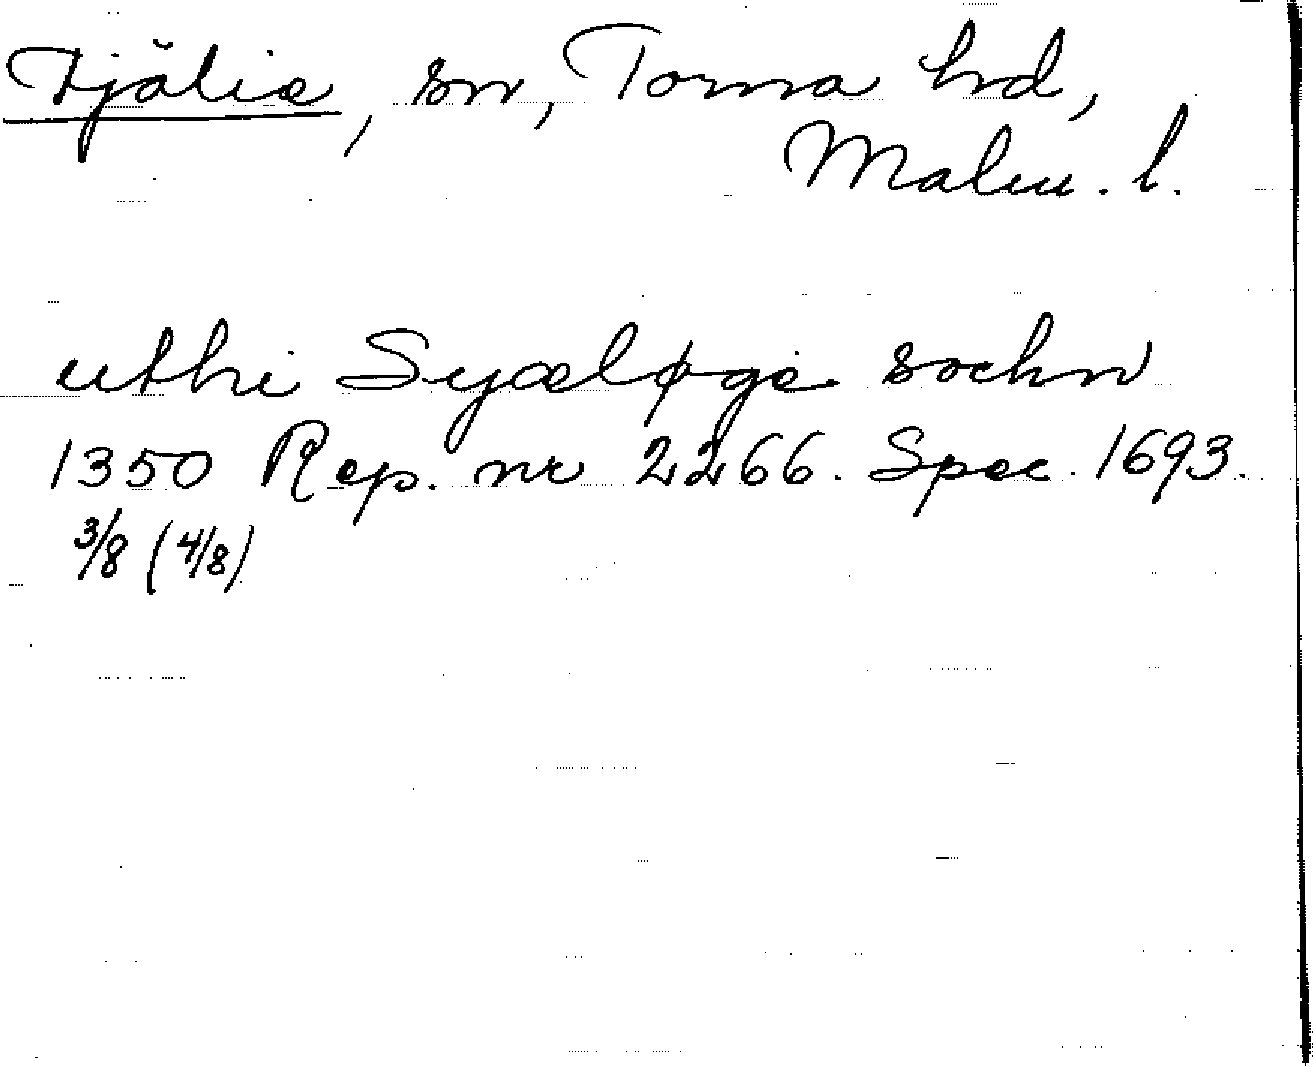 Fjälie, sn, Torna hd,
Malm. l.
uthi Syæløge sochn
1350 Rep. nr 2266. Spec. 1693.
3/8 (4/8)